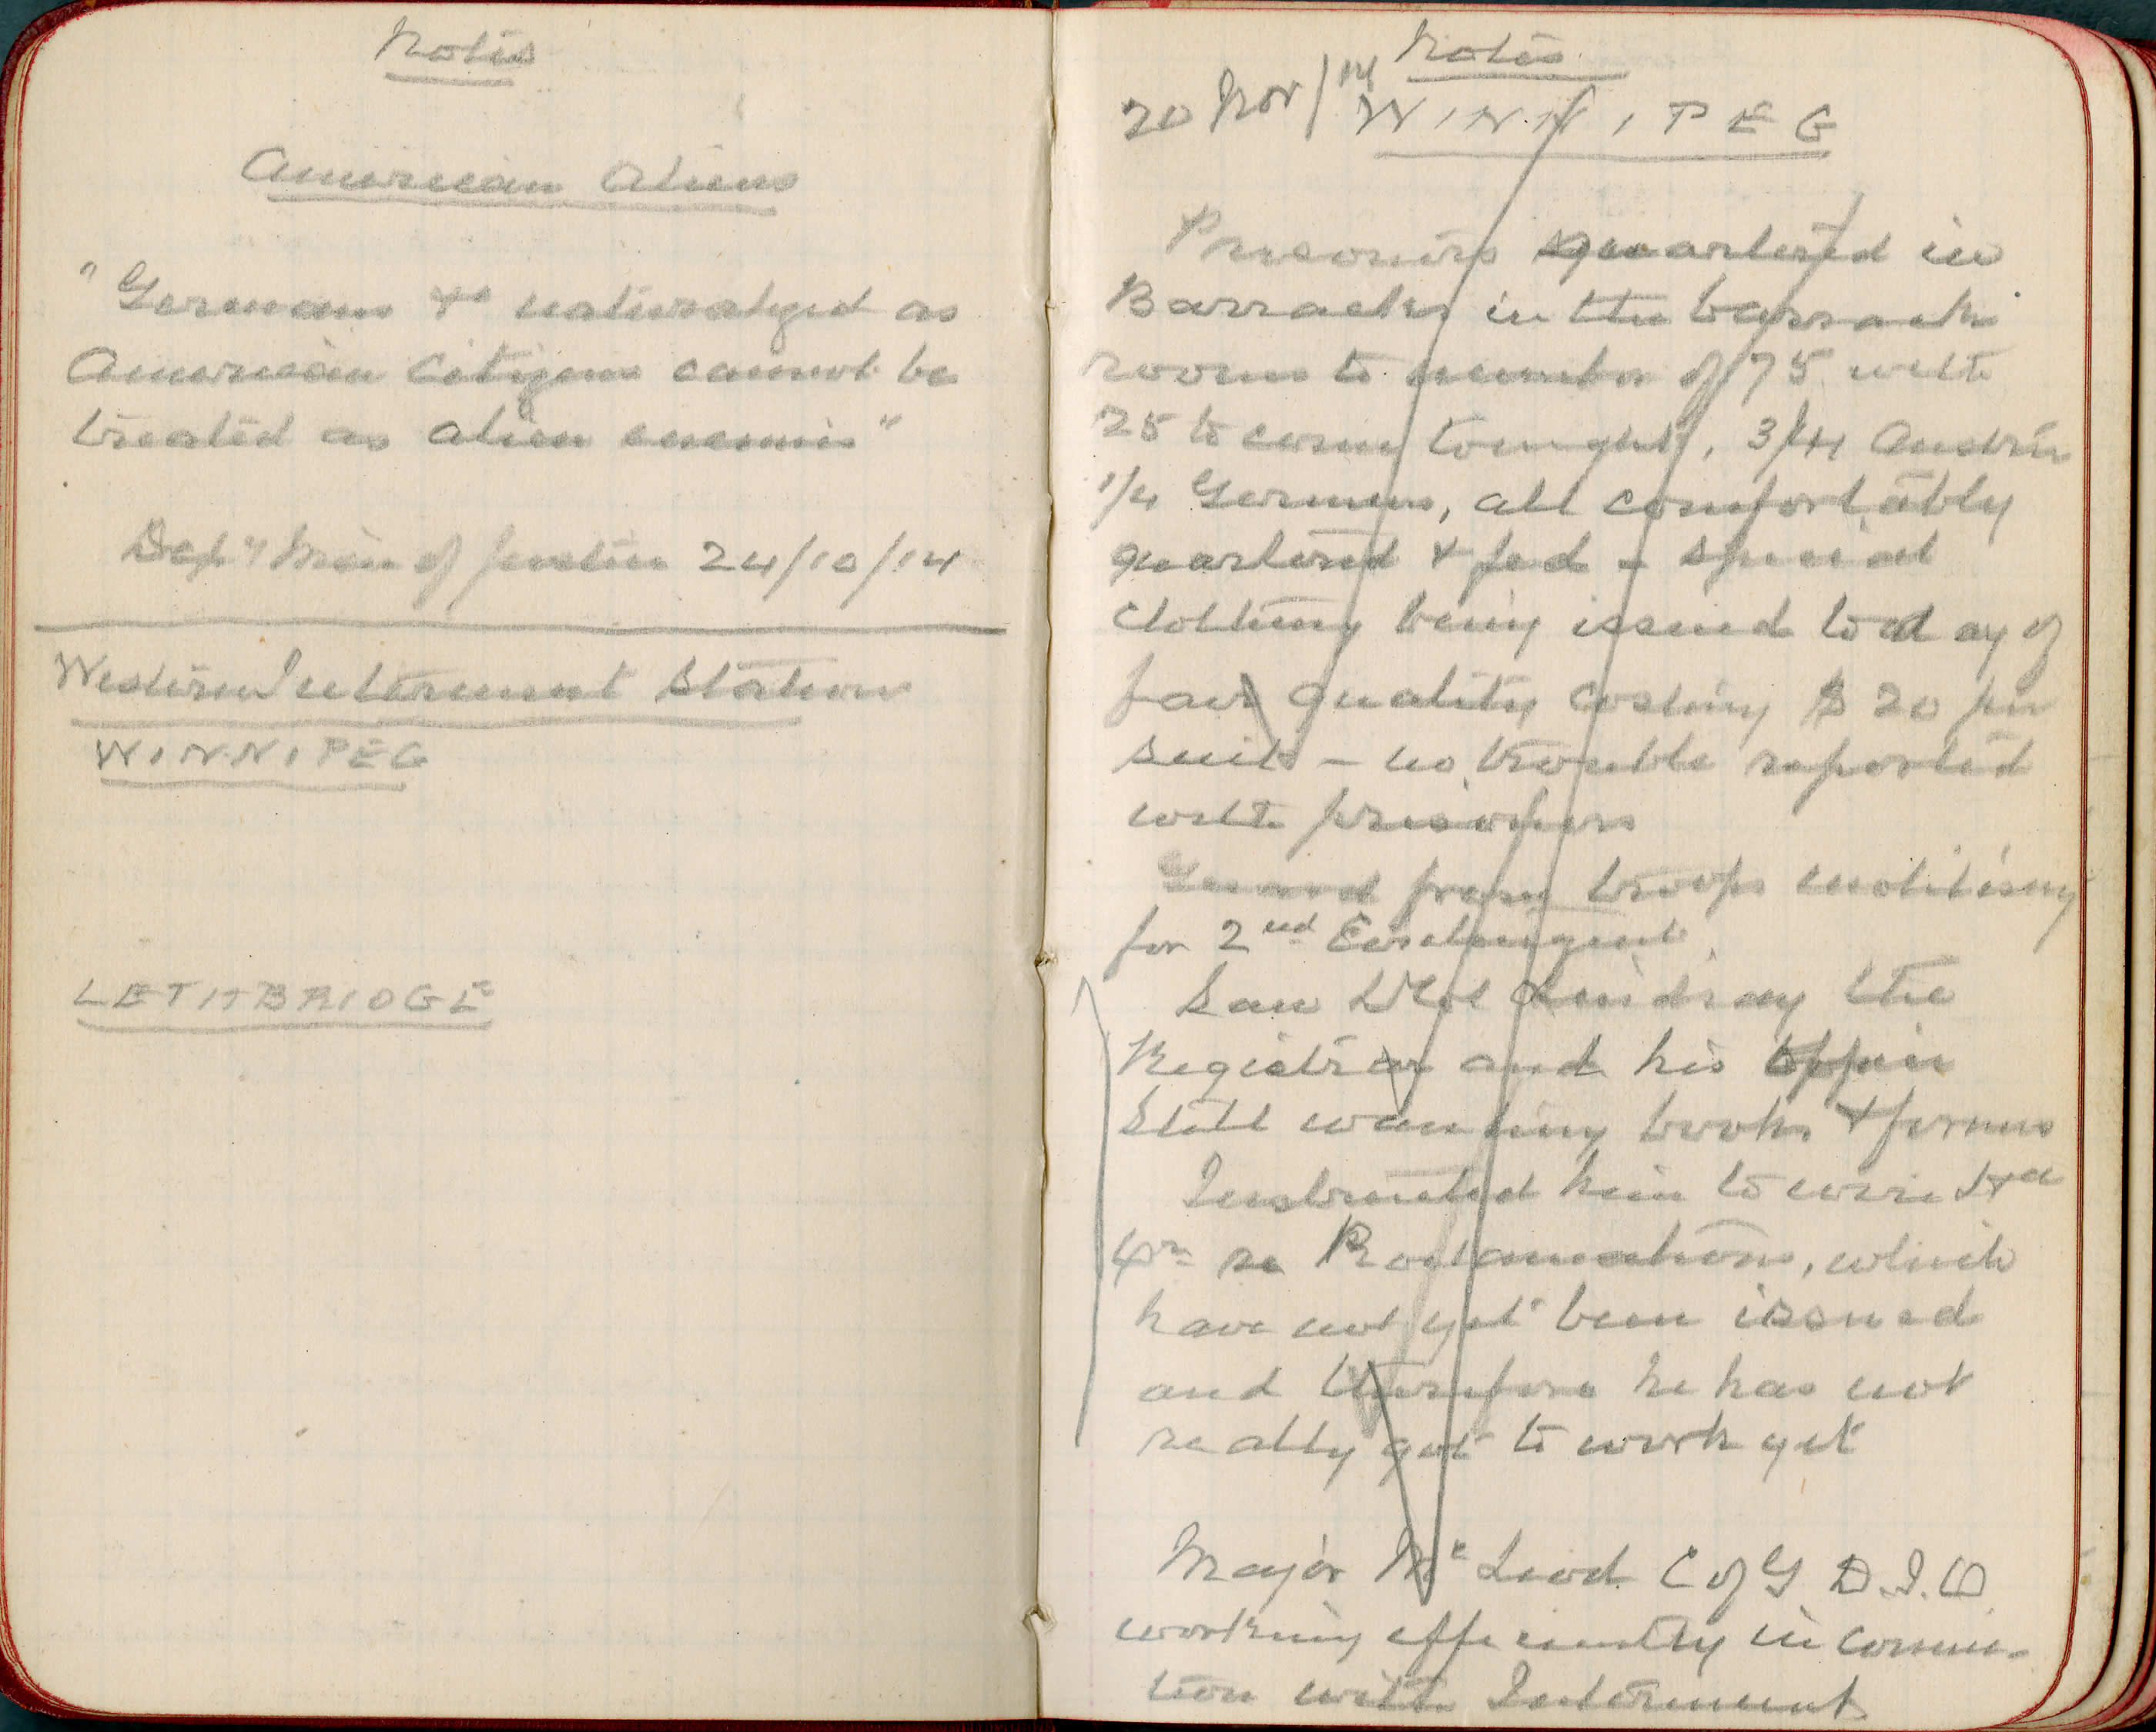 Notes
American Aliens
"Germans &c naturalized as
American Citizens cannot be
treated as alien enemies"
Depy Min of Justice 24/10/14
Western Internment Station
WINNIPEG
LETHBRIDGE
Notes
20 Nov/14 WINNIPEG
Prisoners quartered in
Barracks in the barrack
rooms to number of 75 with
25 to come tonight, 3/4 Austrn
1/4 Germans, all comfortably
quartered & fed - special
clothing being issued today of
fair quality costing $20 per
suit - no trouble reported
with prisoners
Guard from troops mobilising
for 2nd Contingent.
Saw Lt Col Lindsay the
Registrar and his office
still wanting books & forms
Instructed him to wire Hd
Qrs re Proclamations, which
have not yet been issued
and therefore he has not
really got to work yet
Major McLeod C of G D.I.O
working efficiently in connec-
tion with Internment